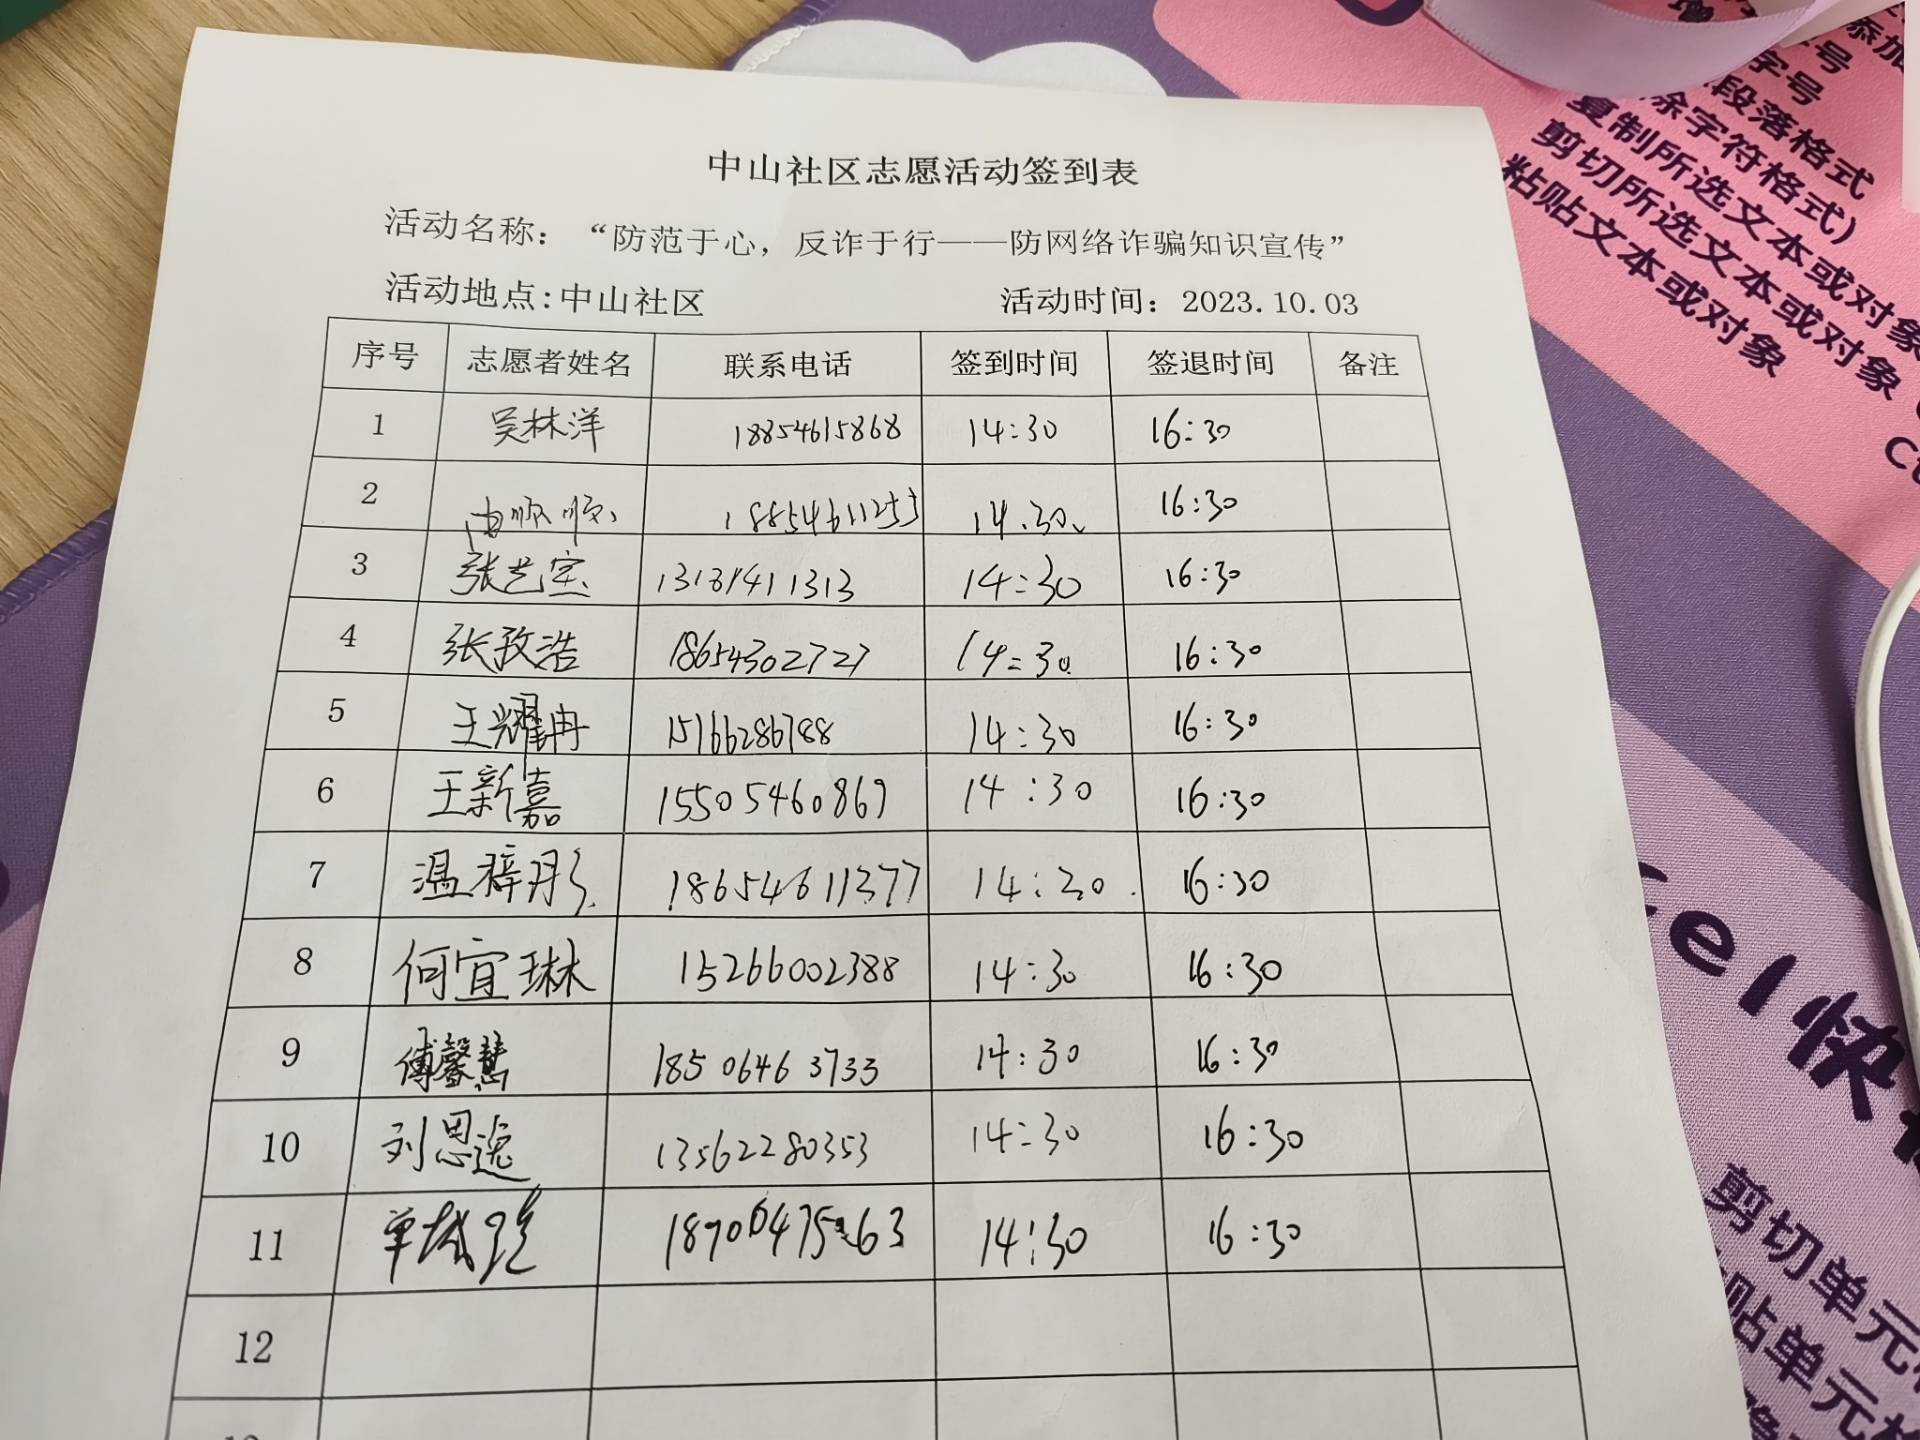 中山社区志愿活动签到表
活动名称：“防范于心，反诈于行——防网络诈骗知识宣传”
活动地点:中山社区 活动时间：2023.10.03
序号 志愿者姓名 联系电话 签到时间 签退时间 备注
1 吴林洋 18854615868 14:30 16:30
2 18854611255 14.30、 16:30
3 张艺宝 13181411313 14:30 16:30
4 张孜浩 18654302727 14:30 16:30
5 王耀冉 15166286788 14:30 16:30
6 王新嘉 15505460869 14:30 16:30
7 温梓彤 18654611377 14:30 16:30
8 何宜琳 15266002388 14:30 16:30
9 傅馨慧 18506463733 14:30 16:30
10 刘思逸 13562280353 14:30 16:30
11 14:30 16:30
12
添加
号
字号
段落格式
除字符格式)
复制所选文本或对象
剪切所选文本或对象
粘贴文本或对象
cel快
剪切单元
贴单元